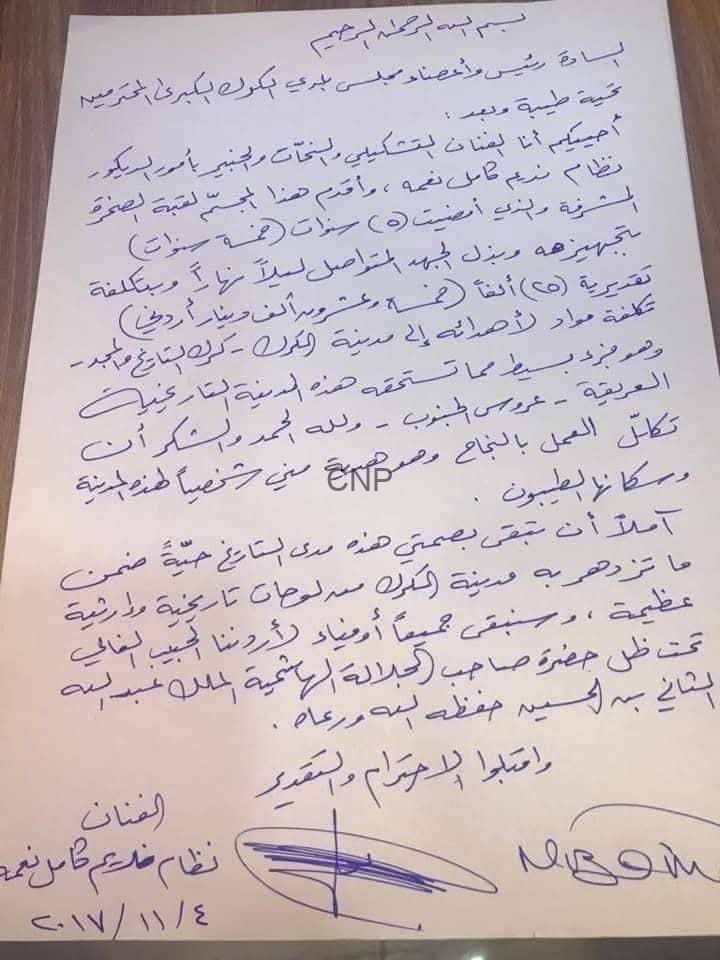 بسم الله الرحمن الرحيم
السادة رئيس وأعضاء مجلس بلدي الكرك الكبرى المحترمين
تحية طيبة وبعد :
أحييكم أنا الفنان التشكيلي والنحّات والخبير بأمور الديكور
نظام نديم كامل نعمه ، وأقدم هذا المجسّم لقبة الصخرة
المشرفة والذي أمضيت (٥) سنوات (خمسة سنوات)
بتجهيزه وبذل الجهد المتواصل ليلاً نهاراً وبتكلفة
تقديرية (٢٥) ألفاً (خمسة وعشرون ألف دينار أردني)
تكلفة مواد لأهدائه إلى مدينة الكرك - كرك التاريخ والمجد -
وهو جزء بسيط مما تستحقه هذه المدينة التاريخية
العريقة - عروس الجنوب - ولله الحمد والشكر أن
تكلّل العمل بالنجاح وهو هدية مني شخصياً لهذه المدينة
وسكانها الطيبون .
CNP
آملاً أن تبقى بصمتي هذه مدى التاريخ حيّةً ضمن
ما تزدهر به مدينة الكرك من لوحات تاريخية وإرثية
عظيمة ، وسنبقى جميعاً أوفياء لأردننا الحبيب الغالي
تحت ظل حضرة صاحب الجلالة الهاشمية الملك عبد الله
الثاني بن الحسين حفظه الله ورعاه .
واقبلوا الاحترام والتقدير
الفنان
نظام نديم كامل نعمه
٢٠١٧/١١/٤